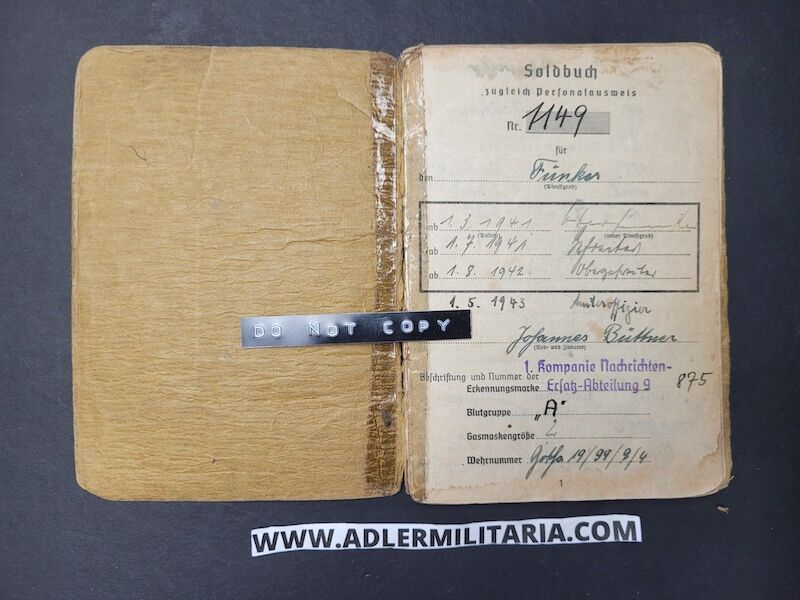 Soldbuch
zugleich Personalausweis
Nr. 1149
für
den Funker
(Dienstgrad)
ab 1.3.1941 Oberfunker
(Datum) (neuer Dienstgrad)
ab 1.7.1941 Gefreiter
ab 1.8.1942 Obergefreiter
1.5.1943 Unteroffizier
DO NOT COPY
Johannes Büttner
(Vor- und Zuname)
1. Kompanie Nachrichten-
Beschriftung und Nummer der
Erkennungsmarke Ersatz-Abteilung 9 875
Blutgruppe „A“
Gasmaskengröße 2
Wehrnummer Gotha 19/99/9/4
1
WWW.ADLERMILITARIA.COM